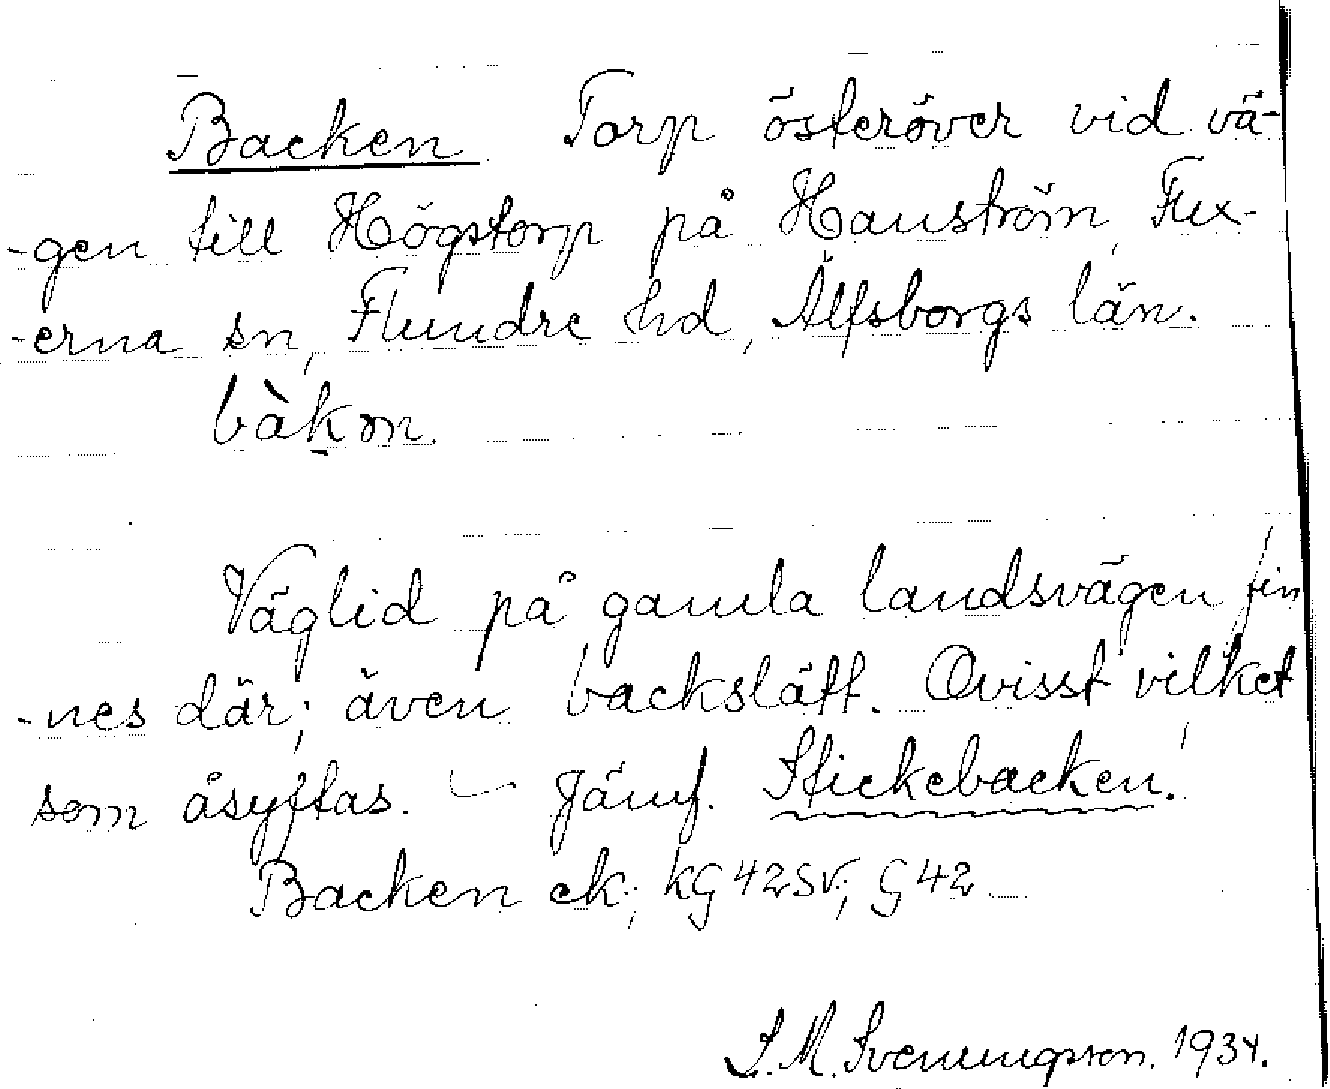 Backen Torp österöver vid vä-
-gen till Högstorp på Hanström, Fux-
-erna sn, Flundre hd, Älfsborgs län.
bàkən.
Väglid på gamla landsvägen fin
-nes där; även backslätt. Ovisst vilket
som åsyftas. – Jämf. Stickebacken.
Backen ek; kG42SV; G42
S. M. Svenungson. 1934.